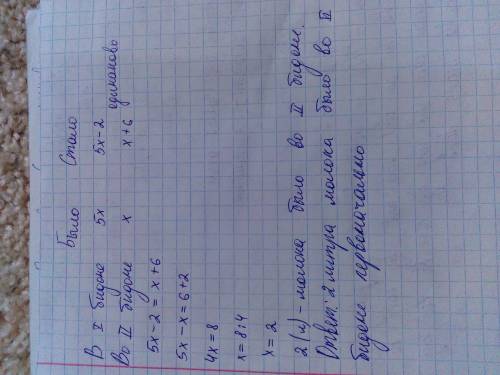 Было Стало
В I бидоне 5х 5х-2
Во II бидоне х х+6 одинаково
5х-2 = х+6
5х-х=6+2
4х=8
х=8:4
х=2
2 (л) - молока было во II бидоне.
Ответ: 2 литра молока было во II
бидоне первоначально